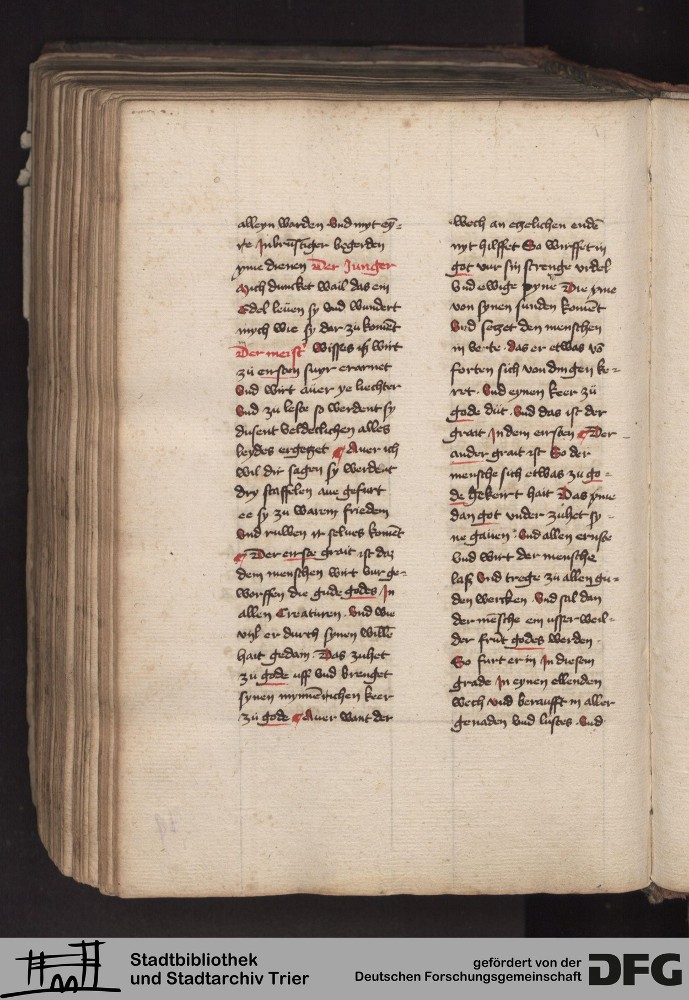 alleyn warden vnd myt ey¯=
re Inbrūstiger begerden
yme dienen Der Junger
Mich duncket wail das ein
Edel leuen sy vnd wundert
mych wie sy dar zu komēt
Der meist' wisses is wirt
zu eirsten suyr erarnet
Vnd wirt auer ye liechter
Vnd zu leste so werdent sy
dusent veldeclichen alles
leydes ergetzet Auer ich
wil dir sagen sy werdent
dry staffelen ane gefurt
ee sy zu warem frieden
Vnd ruwen ir selues komēt
Der eirste grait ist daz
dem menschen wirt vur ge=
worffen die gude godes In
allen Creaturen. Vnd wie
vyl er durch synen willē
hait gedain. Das zuhet
zu gode uff vnd brenget
synen mynnētlichen keer
zu gode Auer want der
wech an etzelichen endē
nyt hilffet So wirffet in
got vur sin strenge vrdel
Vnd ewige pyne Die yme
von synen sunden komēt
Vnd setzet den menschen
in verte. das er etwas vō
forten sich von dingen ke=
ret. Vnd eynen keer zü
gode düt. Vnd das ist der
grait In dem eirsten Der
ander grait ist So der
mensche sich etwas zu go=
de gekeirt hait Das yme
dan got vnder zuhet sy=
ne gauen. Vnd allen ernste
Vnd wirt der mensche
lass Vnd trege zu allen gu=
den wercken. Vnd sal dan
der mēsche ein usserweil=
der frūt godes werden.
So furt er in In diesem
grade In eynen ellenden
wech vnd beraufft in aller
genaden vnd lustes. Vnd
Stadtbibliothek
und Stadtarchiv Trier
gefördert von der
Deutschen Forschungsgemeinschaft
DFG